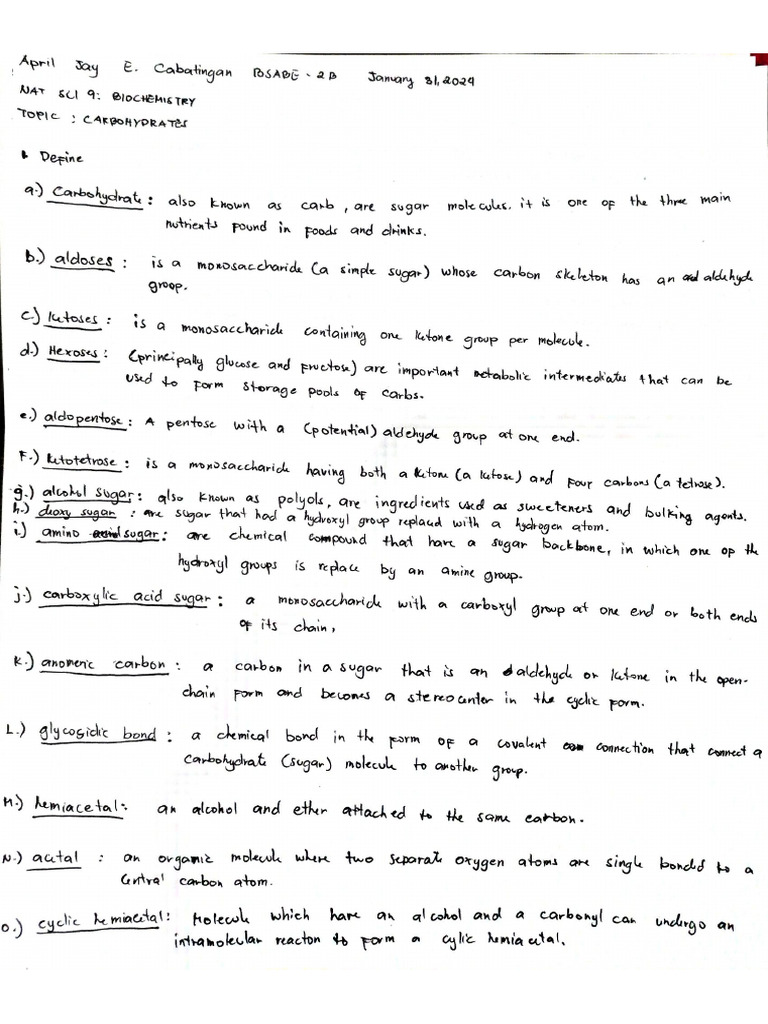 April Jay E. Cabatingan BSABE - 2B January 31, 2024
NAT SCI 9: BIOCHEMISTRY
TOPIC : CARBOHYDRATES
Define
a.) Carbohydrate : also known as carb, are sugar molecules. it is one of the three main
nutrients found in foods and drinks.
b.) aldoses : is a monosaccharide (a simple sugar) whose carbon skeleton has an aldehyde
group.
c.) ketoses : is a monosaccharide containing one ketone group per molecule.
d.) Hexoses : (principally glucose and fructose) are important metabolic intermediates that can be
used to form storage pools of carbs.
e.) aldopentose : A pentose with a (potential) aldehyde group at one end.
F.) ketotetrose : is a monosaccharide having both a ketone (a ketose) and four carbons (a tetrose).
g.) alcohol sugar : also known as polyols, are ingredients used as sweeteners and bulking agents.
h.) deoxy sugar : are sugar that had a hydroxyl group replaced with a hydrogen atom.
i.) amino acid sugar : are chemical compound that have a sugar backbone, in which one of the
hydroxyl groups is replace by an amine group.
j.) carboxylic acid sugar : a monosaccharide with a carboxyl group at one end or both ends
of its chain,
K.) anomeric carbon : a carbon in a sugar that is an aldehyde or ketone in the open-
chain form and becomes a stereocenter in the cyclic form.
L.) glycosidic bond : a chemical bond in the form of a covalent connection that connect a
carbohydrate (sugar) molecule to another group.
M.) hemiacetal : an alcohol and ether attached to the same carbon.
N.) acetal : an organic molecule where two separate oxygen atoms are single bonded to a
central carbon atom.
O.) cyclic hemiacetal : Molecule which have an alcohol and a carbonyl can undergo an
intramolecular reacton to form a cylic hemiacetal.